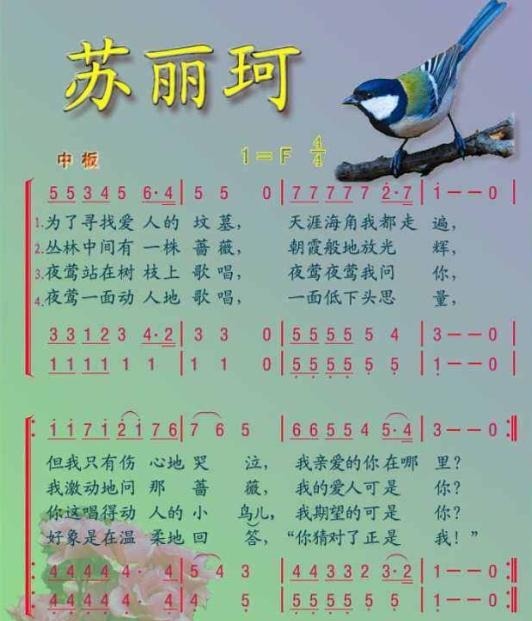 苏丽珂
中板 1=F 4/4
5 5 3 4 5 6·4 | 5 5 0 | 7 7 7 7 7 2·7 | 1 — — 0 |
1.为了寻找爱 人的 坟 墓， 天涯海角我都走 遍，
2.丛林中间有 一株 蔷 薇， 朝霞般地放光 辉，
3.夜莺站在树 枝上 歌 唱， 夜莺夜莺我问 你，
4.夜莺一面动 人地 歌 唱， 一面低下头思 量，
3 3 1 2 3 4·2 | 3 3 0 | 5 5 5 5 5 4 | 3 — — 0 |
1 1 1 1 1 1 1 | 1 1 0 | 5 5 5 5 5 5 | 1 — — 0 |
1 1 7 1 2 1 7 6 | 7 6 5 | 6 6 5 5 4 5·4 | 3 — — 0 :|
但我只有伤 心地 哭 泣， 我亲爱的你在哪 里？
我激动地问 那 蔷 薇， 我的爱人可是 你？
你这唱得动 人的 小 鸟儿， 我期望的可是 你？
好象是在温 柔地 回 答， “你猜对了正是 我！”
4 4 4 4 4 4 4 | 5 4 3 | 4 4 3 3 2 3·2 | 1 — — 0 :|